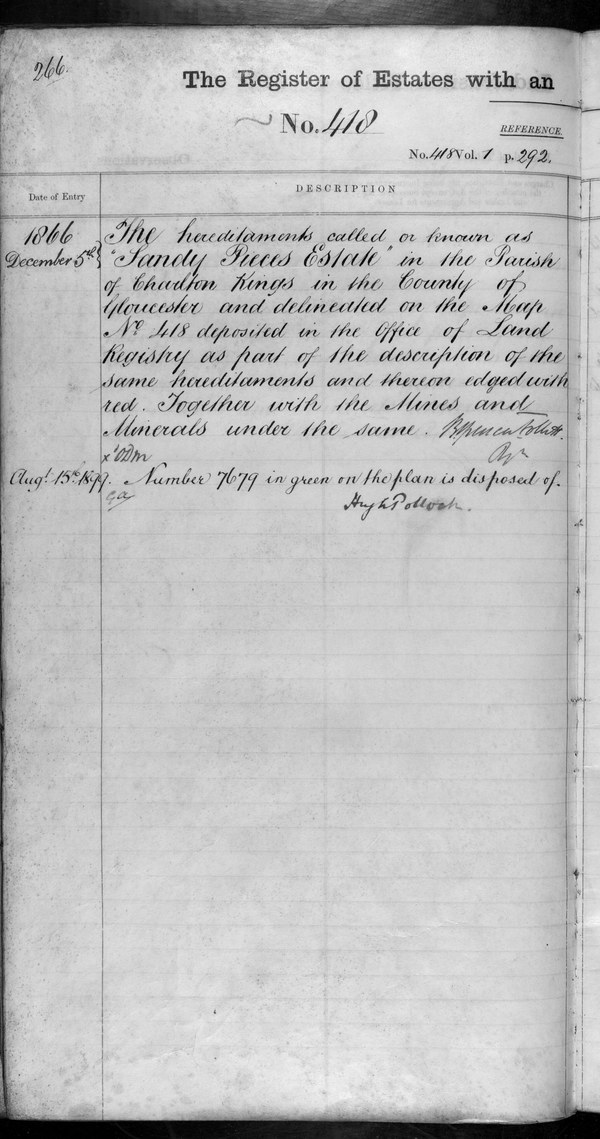 266.
The Register of Estates with an
No. 418
REFERENCE.
No. 418 Vol. 1 p. 292.
Date of Entry
DESCRIPTION
1866
December 5th
The hereditaments called or known as
"Sandy Pieces Estate" in the Parish
of Charlton Kings in the County of
Gloucester and delineated on the Map
No 418 deposited in the Office of Land
Registry as part of the description of the
same hereditaments and thereon edged with
red. Together with the Mines and
Minerals under the same.
Augt. 15th 1899. Number 7679 in green on the plan is disposed of.
Hugh Pollock.